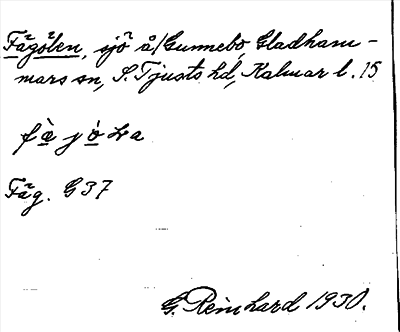 Fågölen, sjö å/Gunnebo, Gladham-
mars sn, S. Tjusts hd, Kalmar l. 15
Fåg. G 37
G. Reinhard 1930.